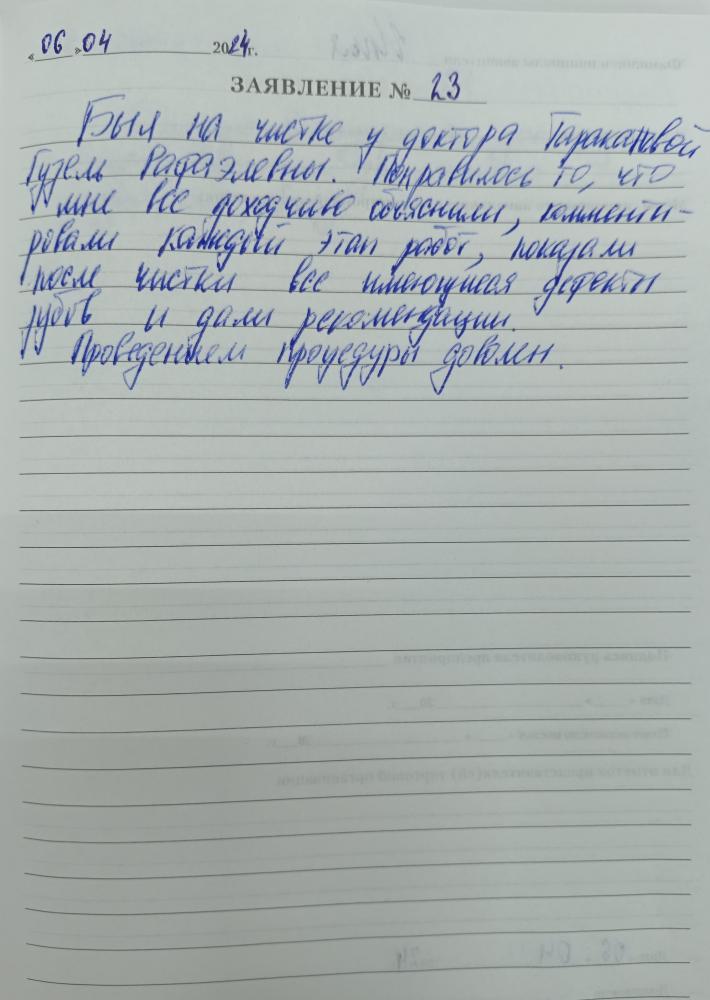 «06» 04 2024 г.
ЗАЯВЛЕНИЕ № 23
Был на чистке у доктора Таракановой
Гузель Рафаэлевны. Понравилось то, что
мне все доходчиво объяснили, комменти-
ровали каждый этап работ, показали
после чистки все имеющиеся дефекты
зубов и дали рекомендации.
Проведением процедуры доволен.